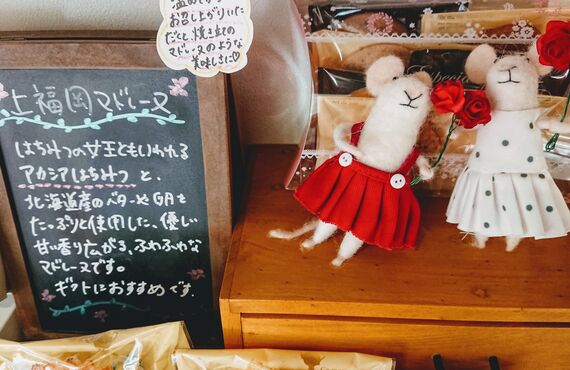 温め
お召し上がりいた
だくと、焼き立ての
マドレーヌのような
美味しさに♡
上福岡マドレーヌ
はちみつの女王ともいわれる
アカシアはちみつと、
北海道産のバターや
たっぷりと使用した、優しい
甘い香り広がる、ふわふわな
マドレーヌです。
ギフトにおすすめです。